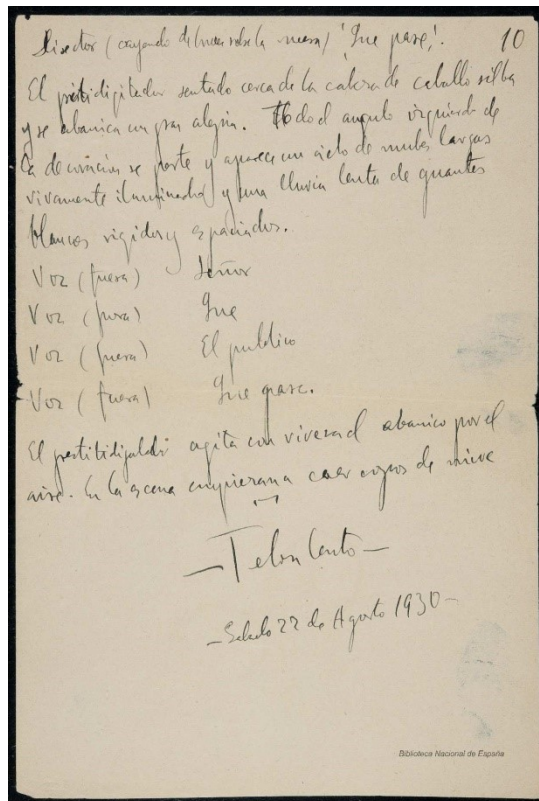 Director (cayendo de bruces sobre la mesa) ¡Que pase!. 10
El prestidigitador sentado cerca de la cabeza de caballo silba
y se abanica con gran alegria. Todo el angulo izquierdo de
la decoración se parte y aparece un cielo de nubes largas
vivamente iluminado y una lluvia lenta de guantes
blancos rigidos y espaciados.
Voz (fuera) Señor
Voz (fuera) Que
Voz (fuera) El publico
Voz (fuera) Que pase.
El agita con viveza el abanico por el
aire. En la escena empiezan a caer copos de nieve
—Telon lento—
—Sabado 22 de Agosto 1930—
Biblioteca Nacional de España